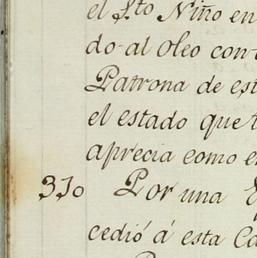 el Sto Niño en
do al oleo con
Patrona de est
el estado que
aprecia como e
310 Por una
cedió á esta Ca